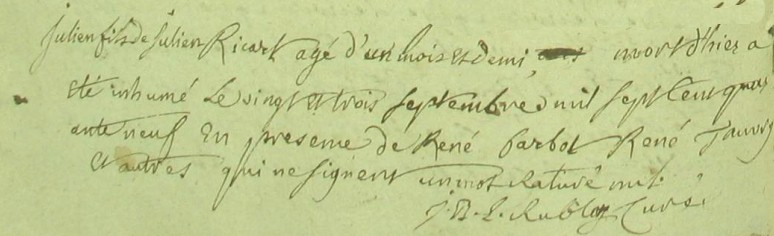 julien fils de julien Ricart agé d'un mois et demi mort d'hier a
été inhumé le vingt et trois septembre mil sept cent quar
ante neuf En presence de René barbot René Tauvry
Et autres qui ne signent un mot raturé nul.
Curé